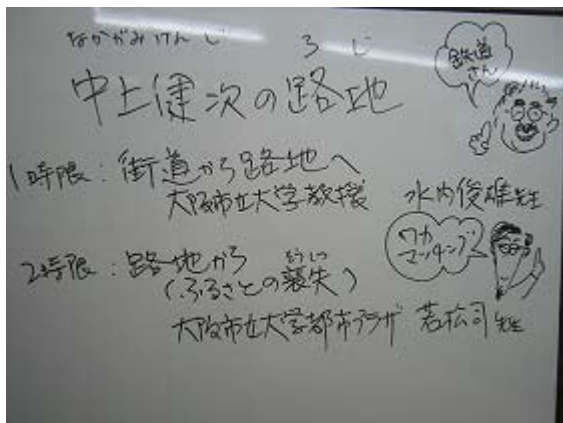 なかがみけんじ ろじ
中上健次の路地
鉄道
さん
1時限：街道から路地へ
大阪市立大学教授 水内俊雄先生
2時限：路地から
そうしつ
(ふるさとの喪失)
ワカ
マッチング
大阪市立大学都市プラザ 若松司先生